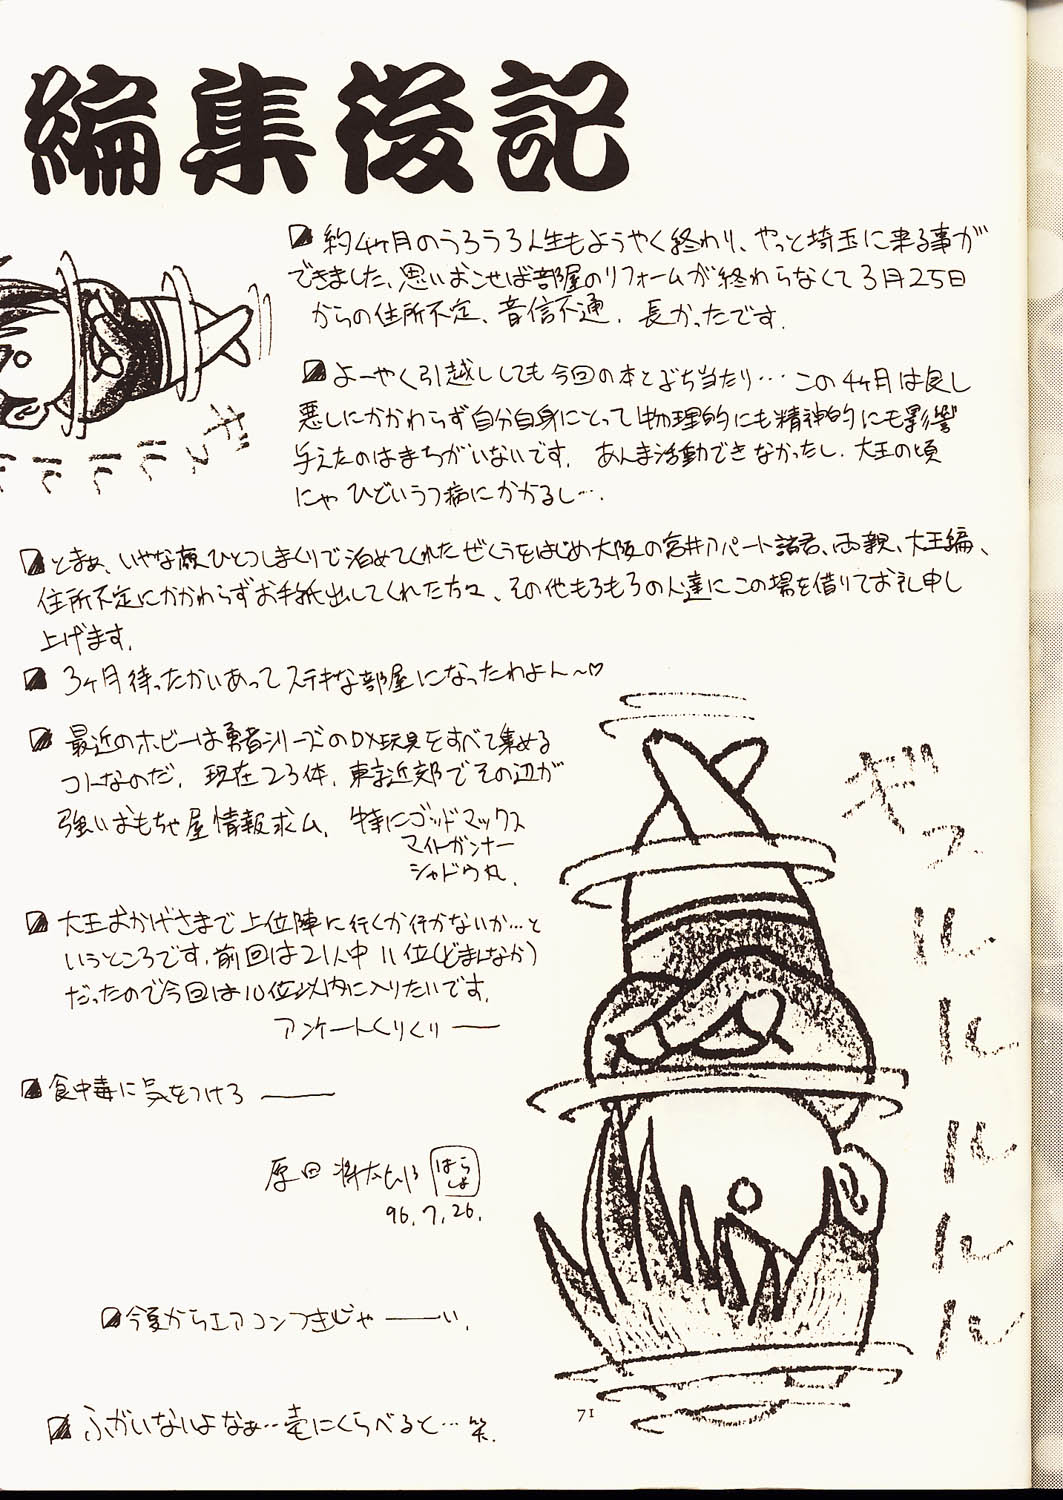 編集後記
約4ヶ月のうろうろ人生もようやく終わり、やっと埼玉に来る事が
できました、思いおこせば部屋のリフォームが終わらなくて3月25日
からの住所不定、音信不通、長かったです。
よーやく引越ししても今回の本とぶち当たり… この4ヶ月は良し
悪しにかかわらず自分自身にとって物理的にも精神的にも影響
与えたのはまちがいないです。あんま活動できなかったし、大王の頃
にゃひどいうつ病にかかるし…。
とまぁ、いやな顔ひとつしまくりで泊めてくれたぜくうをはじめ大阪の宮井アパート諸君、両親、大王編、
住所不定にかかわらずお手紙出してくれた方々、その他もろもろの人達にこの場を借りてお礼申し
上げます。
3ヶ月待ったかいあってステキな部屋になったわよん〜♡
最近のホビーは勇者シリーズのDX玩具をすべて集める
コトなのだ。現在23体、東京近郊でその辺が
強いおもちゃ屋情報求ム。特にゴッドマックス
マイトガンナー
シャドウ丸。
大王おかげさまで上位陣に行くか行かないか…と
いうところです。前回は21人中11位(どまんなか)
だったので今回は10位以内に入りたいです。
アンケートくりくりー
食中毒に気をつけろー
原田将太郎 はらしょ
96.7.26.
今夏からエアコンつきじゃーい。
ふがいないよなぁ…壱にくらべると… 笑.
ギュルルルルル
71